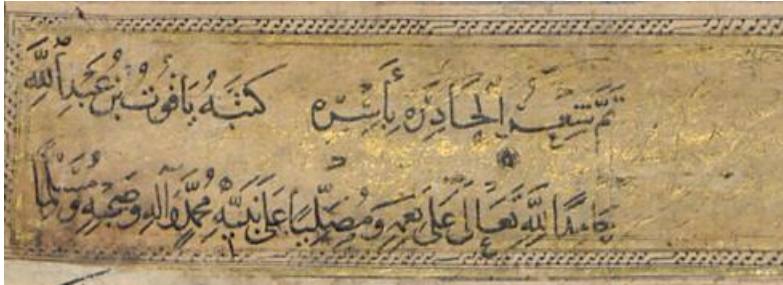 تَمَّ شِعْرُ الْحَادِرَه بِأَسْرِه كَتَبَهُ يَاقُوتُ بْنُ عَبْدِ اللَّهِ
حَامِدًا لِلَّهِ تَعَالَى عَلَى نِعَمِهِ وَمُصَلِّيًا عَلَى نَبِيِّهِ مُحَمَّدٍ وَآلِهِ وَصَحْبِهِ وَمُسَلِّمًا